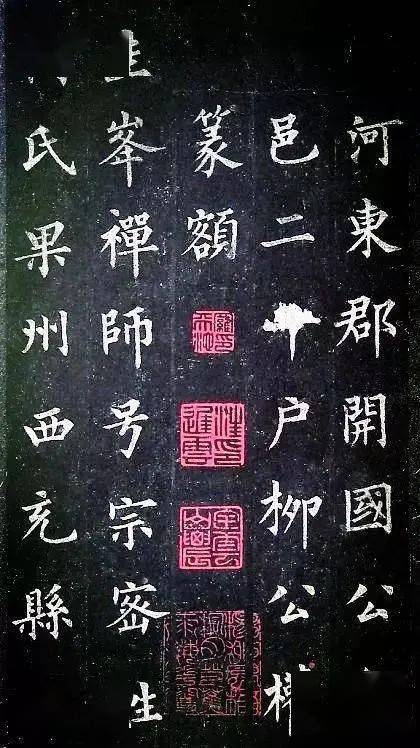 河東郡開國公
邑二户柳公
篆額
峯禪師号宗密生
氏果州西充縣